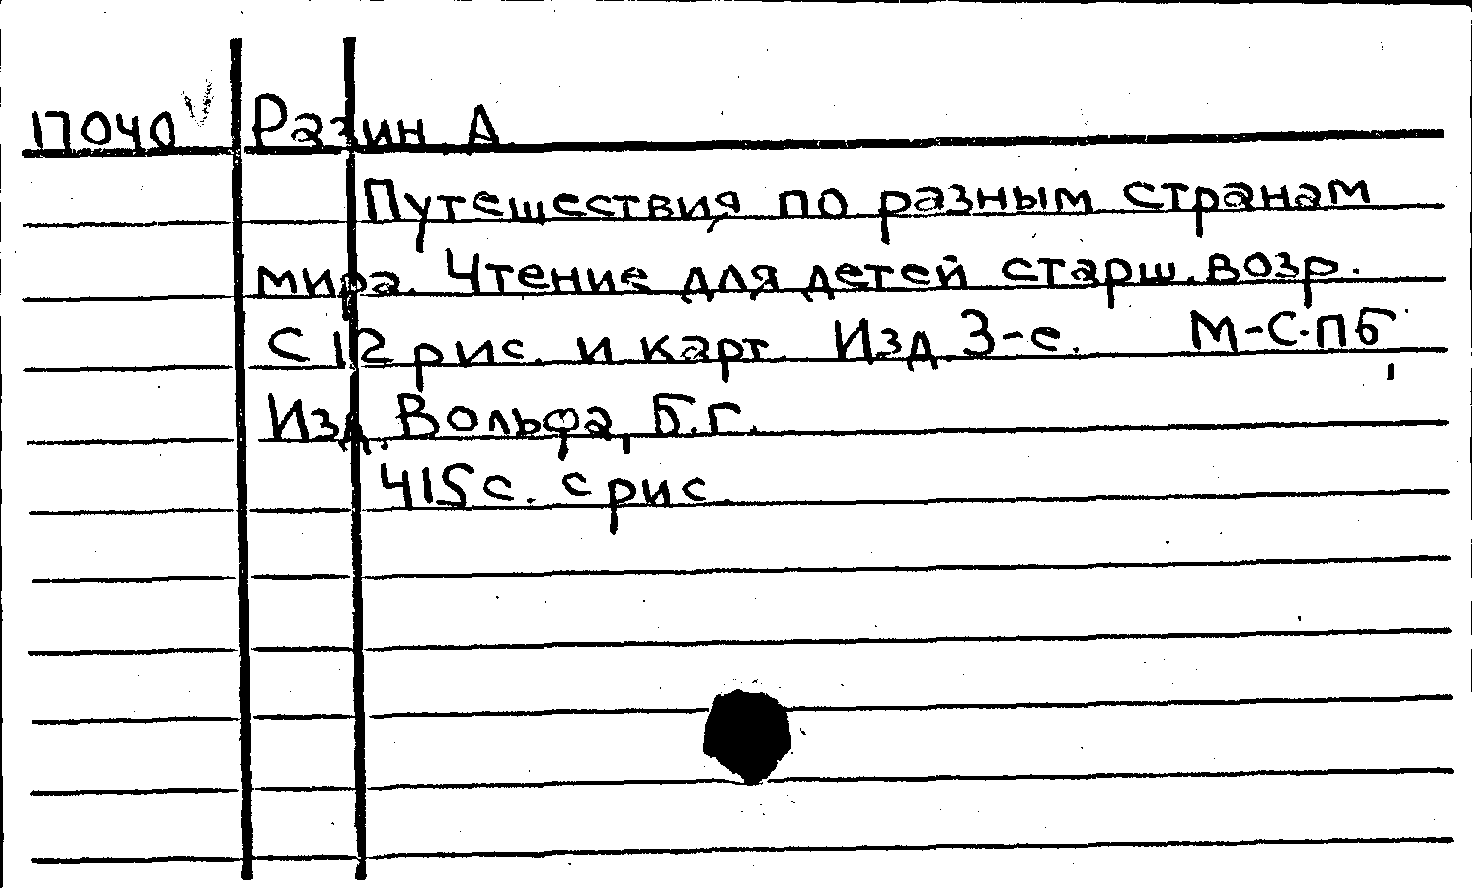 17040 Разин А.
Путешествия по разным странам
мира. Чтение для детей старш. возр.
С 12 рис. и карт. Изд. 3-е. М-С.пб,
Изд. Вольфа, Б.г.
415 с. с рис.